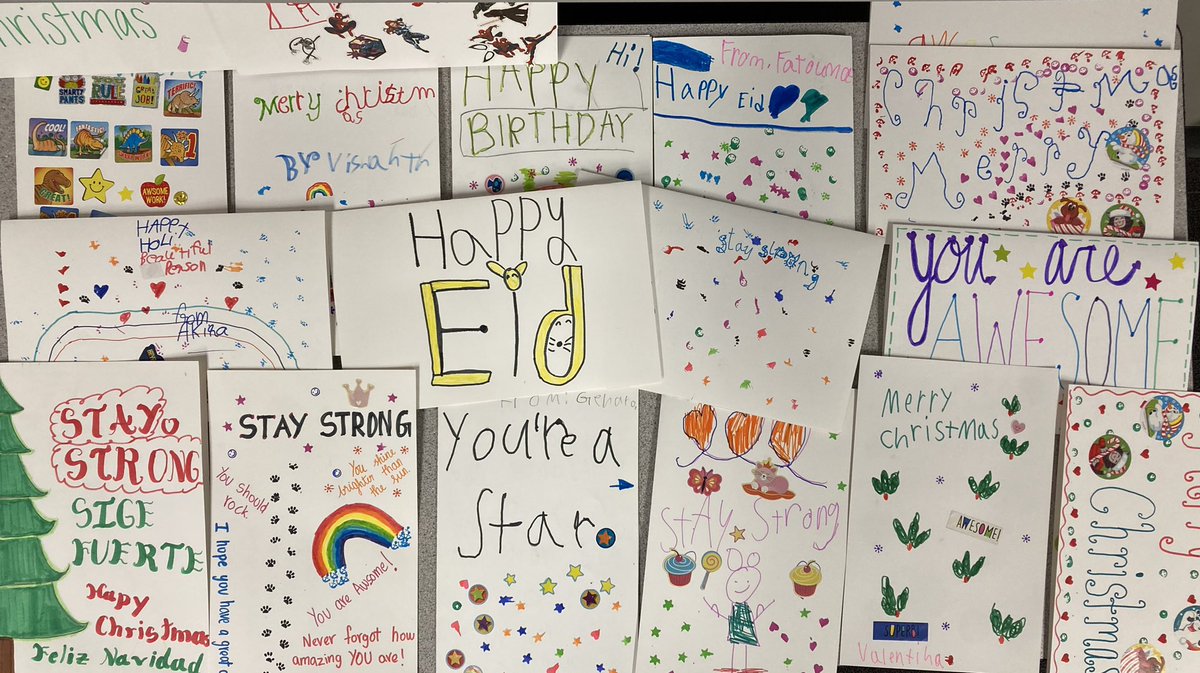 christmas
COOL!
SMARTY
PANTS
RULE
GREAT
JOB!
TERRIFIC!
FANTASTIC
#1
GREAT!
AWSOME
WORK!
Merry christm
as
BY Visnahth
Hi!
HAPPY
BIRTHDAY
From, Fatouma
Happy Eid
Chris#mas
Merry
HAPPY
HOLi
Beautiful
Person
from
AKiza
Happy
Eid
stay strong
you are
AWESOME
STAY
STRONG
SIGE
FUERTE
Hapy
Christmas
Feliz Navidad
STAY STRONG
You shine
brighter than
the sun.
You should
rock
I hope you have a great
You are Awsome!
Never forgot how
amazing YOU are!
From:
You're a
Star
StAy Strong
Merry
christmas
AWESOME!
SUPERB!
Valentina
Christmas